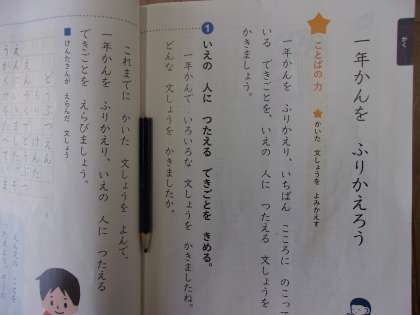 かく
一年かんを ふりかえろう
ことばの力
かいた 文しょうを よみかえす
一年かんを ふりかえり、いちばん こころに のこって
いる できごとを、いえの 人に つたえる 文しょうを
かきましょう。
1 いえの 人に つたえる できごとを きめる。
一年かんで いろいろな 文しょうを かきましたね。
どんな 文しょうを かきましたか。
これまでに かいた 文しょうを よんで、
一年かんを ふりかえり、いえの 人に つたえる
できごとを えらびましょう。
けんたさんが えらんだ 文しょう